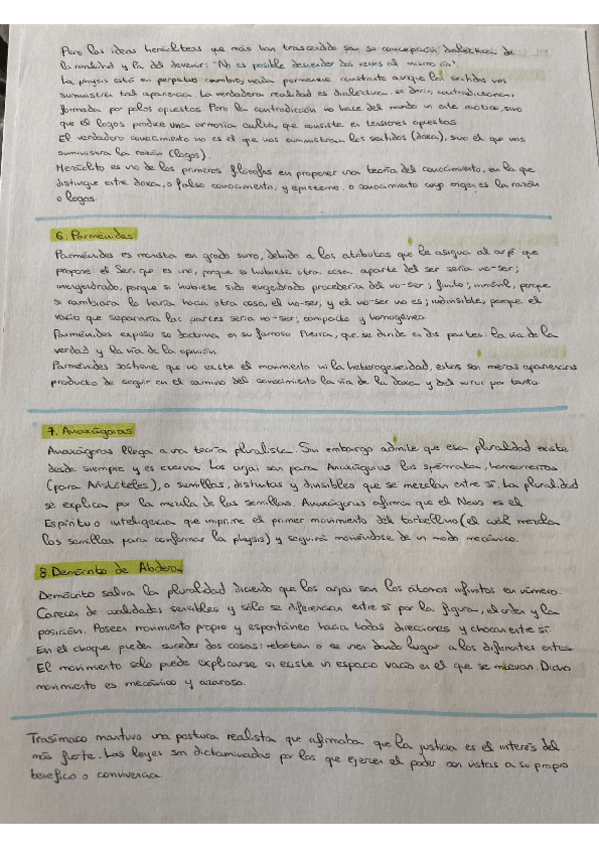 Pero las ideas heraclíteas que más han trascendido son su concepción dialéctica de
la realidad y la del devenir: "No es posible descender dos veces al mismo río".
La physis está en perpetuo cambio, nada permanece constante aunque los sentidos nos
suministren tal apariencia. La verdadera realidad es dialéctica, es decir, contradictoria,
formada por polos opuestos. Pero la contradicción no hace del mundo un ente caótico, sino
que el logos produce una armonía oculta, que consiste en tensiones opuestas
El verdadero conocimiento no es el que nos suministran los sentidos (doxa), sino el que nos
suministra la razón (logos).
Heráclito es uno de los primeros filósofos en proponer una teoría del conocimiento, en la que
distingue entre doxa, o falso conocimiento, y episteme, o conocimiento cuyo origen es la razón
o logos.
6. Parménides
Parménides es monista en grado sumo, debido a los atributos que le asigna al arjé que
propone: el Ser, que es uno, porque si hubiese otra cosa aparte del ser sería no-ser;
inengendrado, porque si hubiese sido engendrado procedería del no-ser; finito; inmóvil, porque
si cambiara lo haría hacia otra cosa, el no-ser, y el no-ser no es; indivisible, porque el
vacío que separaría las partes sería no-ser; compacto y homogéneo.
Parménides expuso su doctrina en su famoso Poema, que se divide en dos partes: la vía de la
verdad y la vía de la opinión
Parménides sostiene que no existe el movimiento ni la heterogeneidad, estos son meras apariencias
producto de seguir en el camino del conocimiento la vía de la doxa y del error por tanto.
7. Anaxágoras
Anaxágoras llega a una teoría pluralista. Sin embargo admite que esa pluralidad existe
desde siempre y es eterna. Los arjai son para Anaxágoras las spérmata, homeomerías
(para Aristóteles), o semillas, distintas y divisibles que se mezclan entre sí. La pluralidad
se explica por la mezcla de las semillas. Anaxágoras afirma que el Nous es el
Espíritu o inteligencia que imprime el primer movimiento del torbellino (el cual mezcla
las semillas para conformar la physis) y seguirá moviéndose de un modo mecánico.
8. Demócrito de Abdera
Demócrito salva la pluralidad diciendo que los arjai son los átomos infinitos en número.
Carecen de cualidades sensibles y sólo se diferencian entre sí por la figura, el orden y la
posición. Poseen movimiento propio y espontáneo hacia todas direcciones y chocan entre sí.
En el choque pueden suceder dos cosas: rebotan o se unen dando lugar a los diferentes entes.
El movimiento solo puede explicarse si existe un espacio vacío en el que se muevan. Dicho
movimiento es mecánico y azaroso.
Trasímaco mantuvo una postura realista que afirmaba que la justicia es el interés del
más fuerte. Las leyes son dictaminadas por los que ejercen el poder con vistas a su propio
beneficio o convivencia.